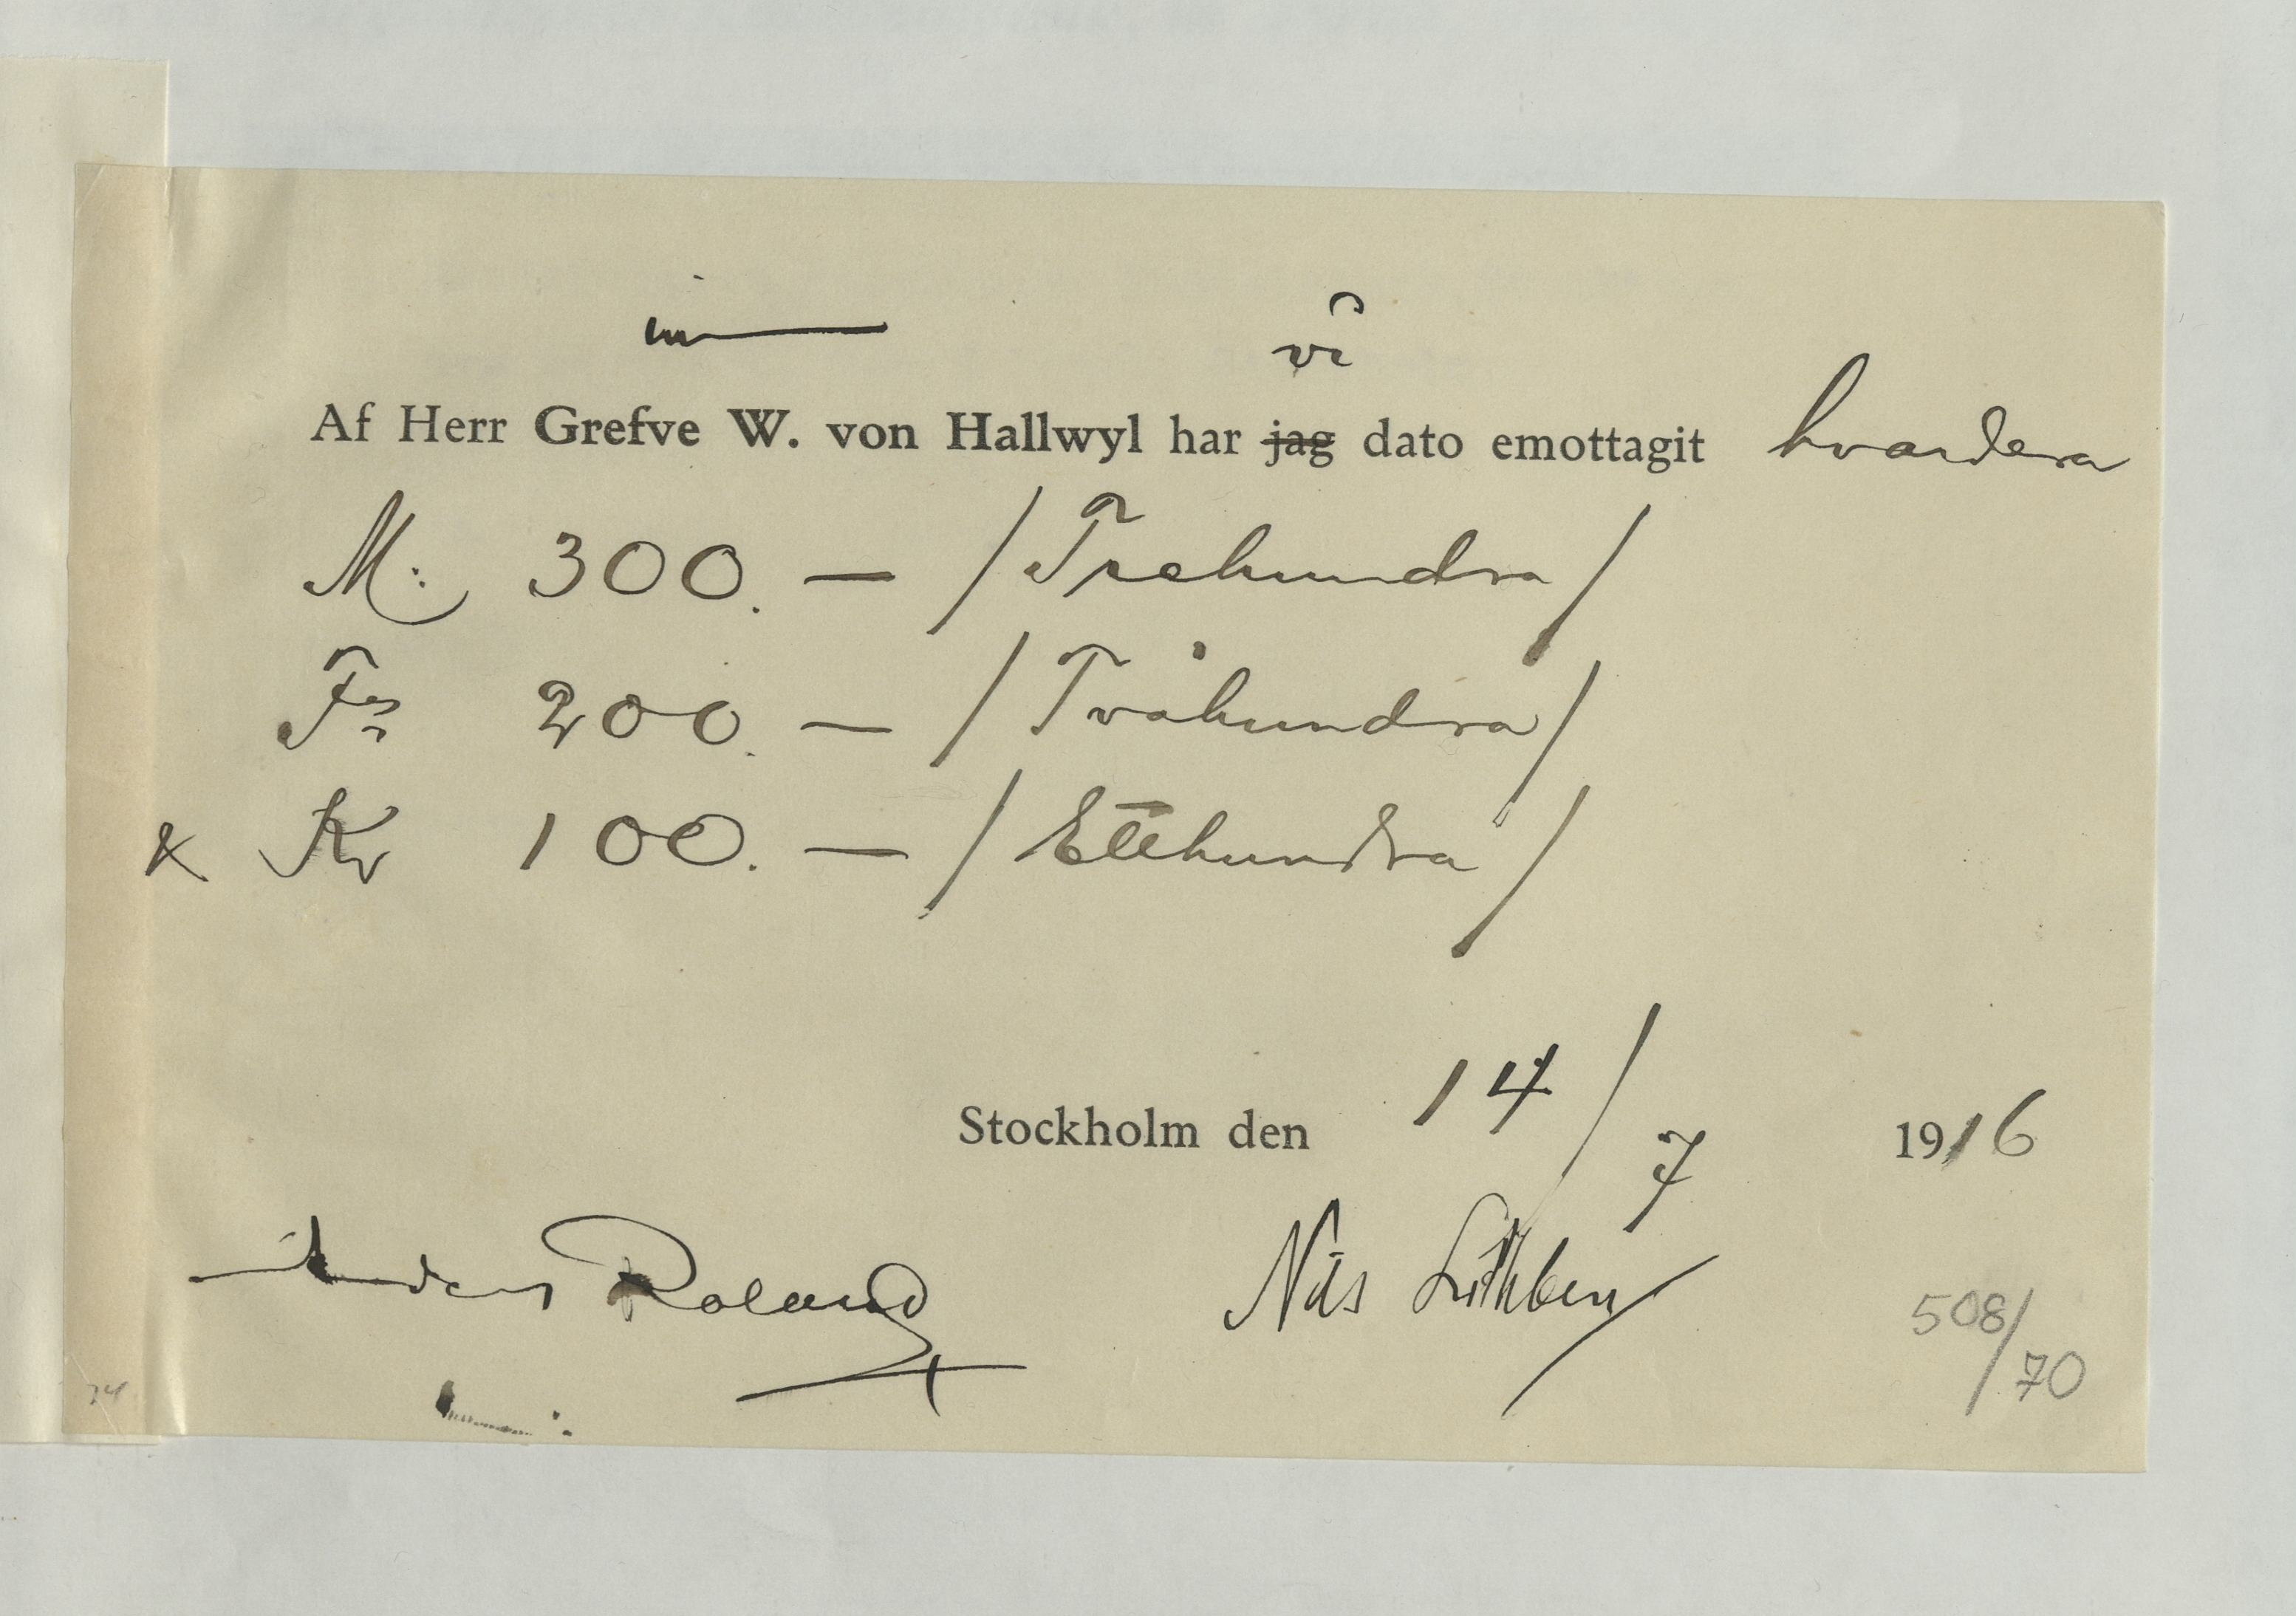 vi
Af Herr Grefve W. von Hallwyl har jag dato emottagit hvardera
M. 300. — / Trehundra /
Frs 200. — / Tvåhundra /
x Kr 100. — / Etthundra /
Stockholm den 14/7 1916
Anders Roland Nils Lithberg
508/70